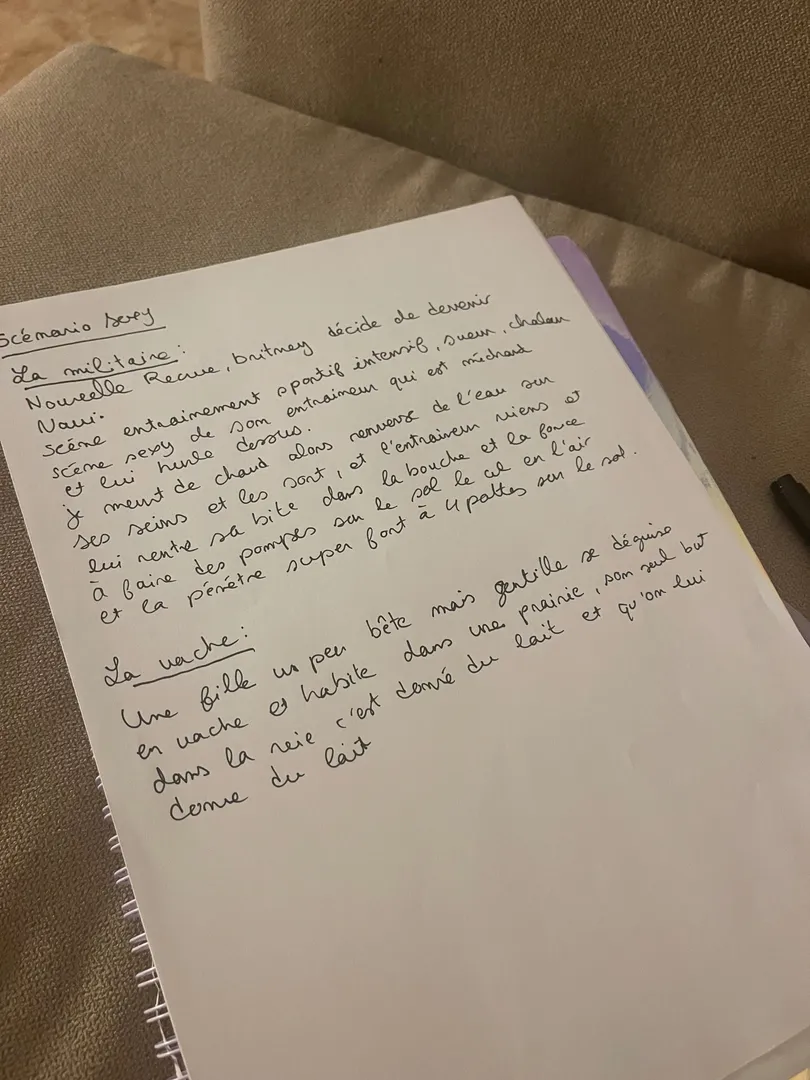 Scénario Sexy
La militaire :
Nouvelle Recrue, britney décide de devenir
Navi.
Scène entrainement sportif intensif, sueur, chaleur
scène sexy de son entraineur qui est méchant
et lui hurle dessus.
meurt de chaud alors renverse de l'eau sur
ses seins et les sont, et l'entraineur viens et
lui rentre sa bite dans la bouche et la force
à faire des pompes sur le sol le cul en l'air
et la pénètre super fort à 4 pattes sur le sol.
La vache :
Une fille un peu bête mais gentille se déguise
en vache et habite dans une prairie, son seul but
dans la vie c'est donné du lait et qu'on lui
donne du lait